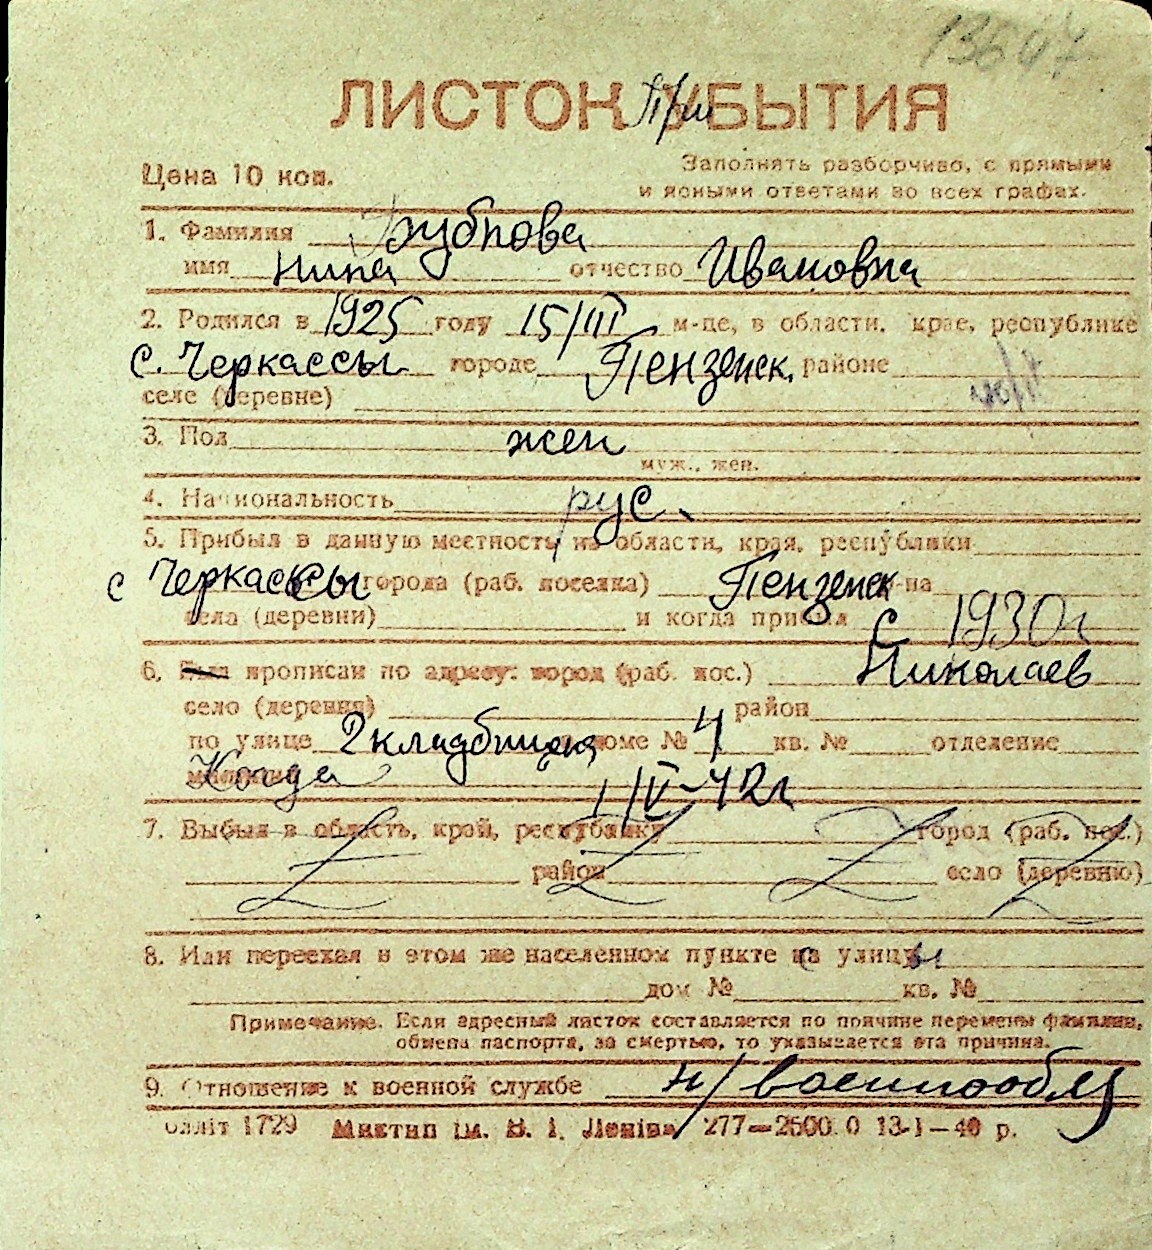 13647
ЛИСТОК При УБЫТИЯ
Цена 10 коп.
Заполнять разборчиво, с прямыми
и ясными ответами во всех графах.
1. Фамилия Зубкова
имя Нина отчество Ивановна
2. Родился в 1925 году 15/III м-це, в области, крае, республике
с. Черкассы городе Пензенск. районе
селе (деревне)
3. Пол жен
муж., жен.
4. Национальность рус.
5. Прибыл в данную местность из области, края, республики
с Черкассы города (раб. поселка) Пензенск р-на
села (деревни) и когда прибыл с 1930 г
6. Был прописан по адресу: город (раб. пос.) Николаев
село (деревня) район
по улице 2 кладбищенск в доме № 4 кв. № отделение
милиции Когда 1/IV-42 г
7. Выбыл в область, край, республику город (раб. пос.)
район село (деревню)
8. Или переехал в этом же населенном пункте с улицы
дом № кв. №
Примечание. Если адресный листок составляется по причине перемены фамилии,
обмена паспорта, за смертью, то указывается эта причина.
9. Отношение к военной службе н/военнообяз
блліт 1729 Миктип ім. В. І. Леніна 277—2500.0 13-I—40 р.